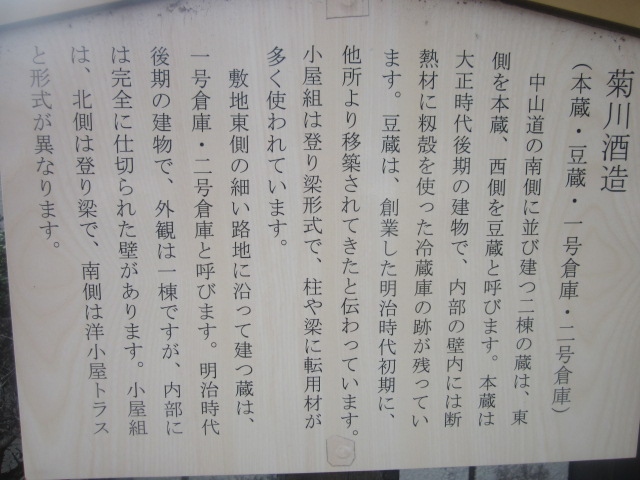 菊川酒造
（本蔵・豆蔵・一号倉庫・二号倉庫）
中山道の南側に並び建つ二棟の蔵は、東
側を本蔵、西側を豆蔵と呼びます。本蔵は
大正時代後期の建物で、内部の壁内には断
熱材に籾殻を使った冷蔵庫の跡が残ってい
ます。豆蔵は、創業した明治時代初期に、
他所より移築されてきたと伝わっています。
小屋組は登り梁形式で、柱や梁に転用材が
多く使われています。
敷地東側の細い路地に沿って建つ蔵は、
一号倉庫・二号倉庫と呼びます。明治時代
後期の建物で、外観は一棟ですが、内部に
は完全に仕切られた壁があります。小屋組
は、北側は登り梁で、南側は洋小屋トラス
と形式が異なります。